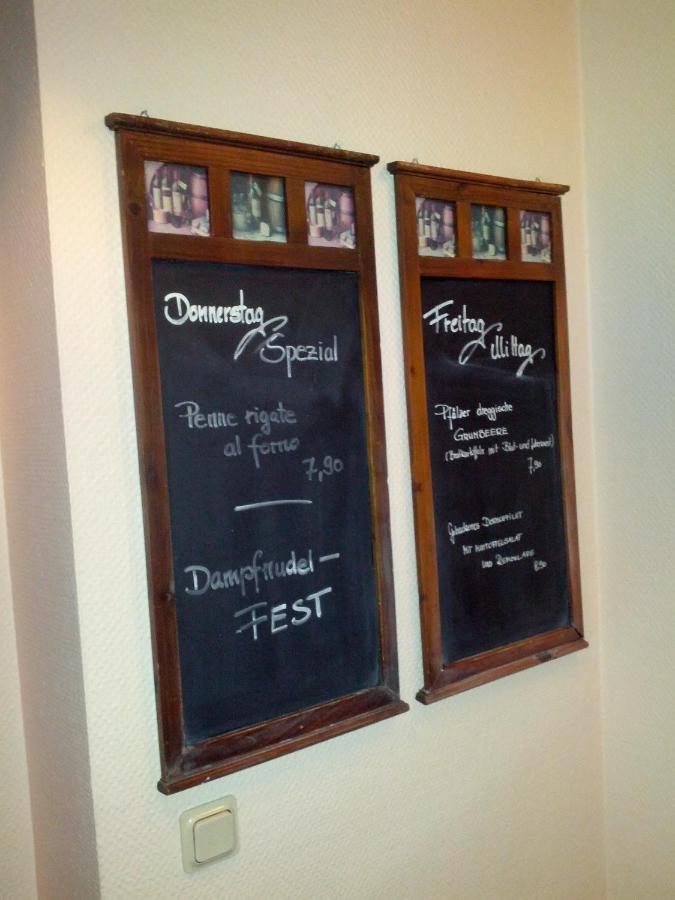 Donnerstag
Spezial
Penne rigate
al forno
7,90
Dampfnudel-
FEST
Freitag
Mittag
Pfälzer dreggische
GRUMBEERE
(Bratkartoffeln mit Blut- und Leberwurst)
7,90
Gebackenes DORSCHFILET
MIT KARTOFFELSALAT
UND REMOULADE
8,90